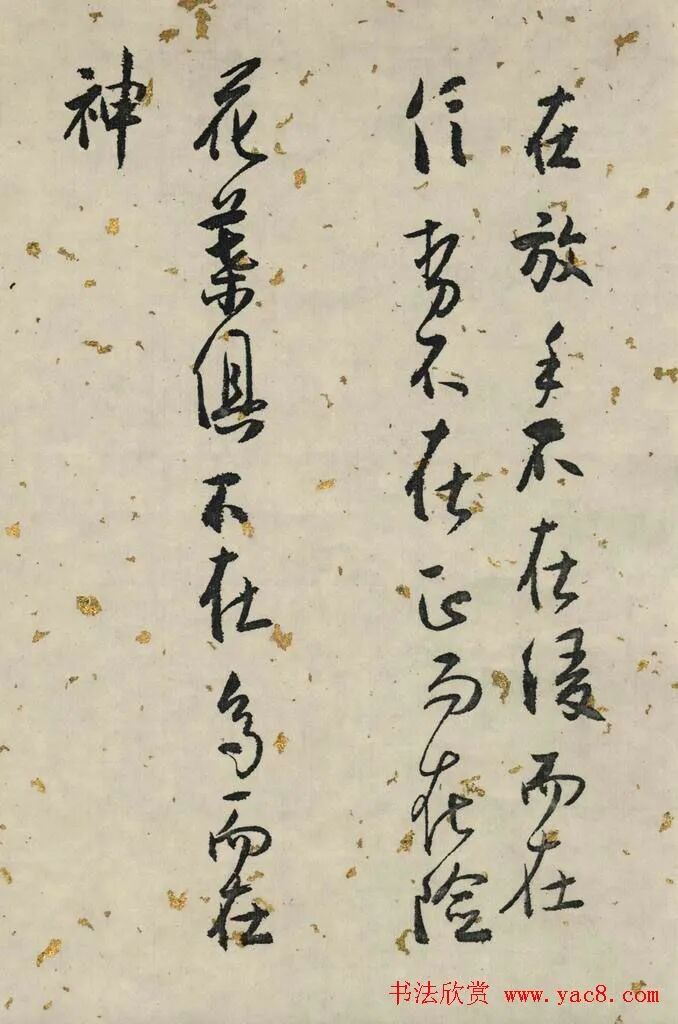 在放手不在緩而在
信勢不在正而在險
花葉俱不在多而在
神
书法欣赏 www.yac8.com